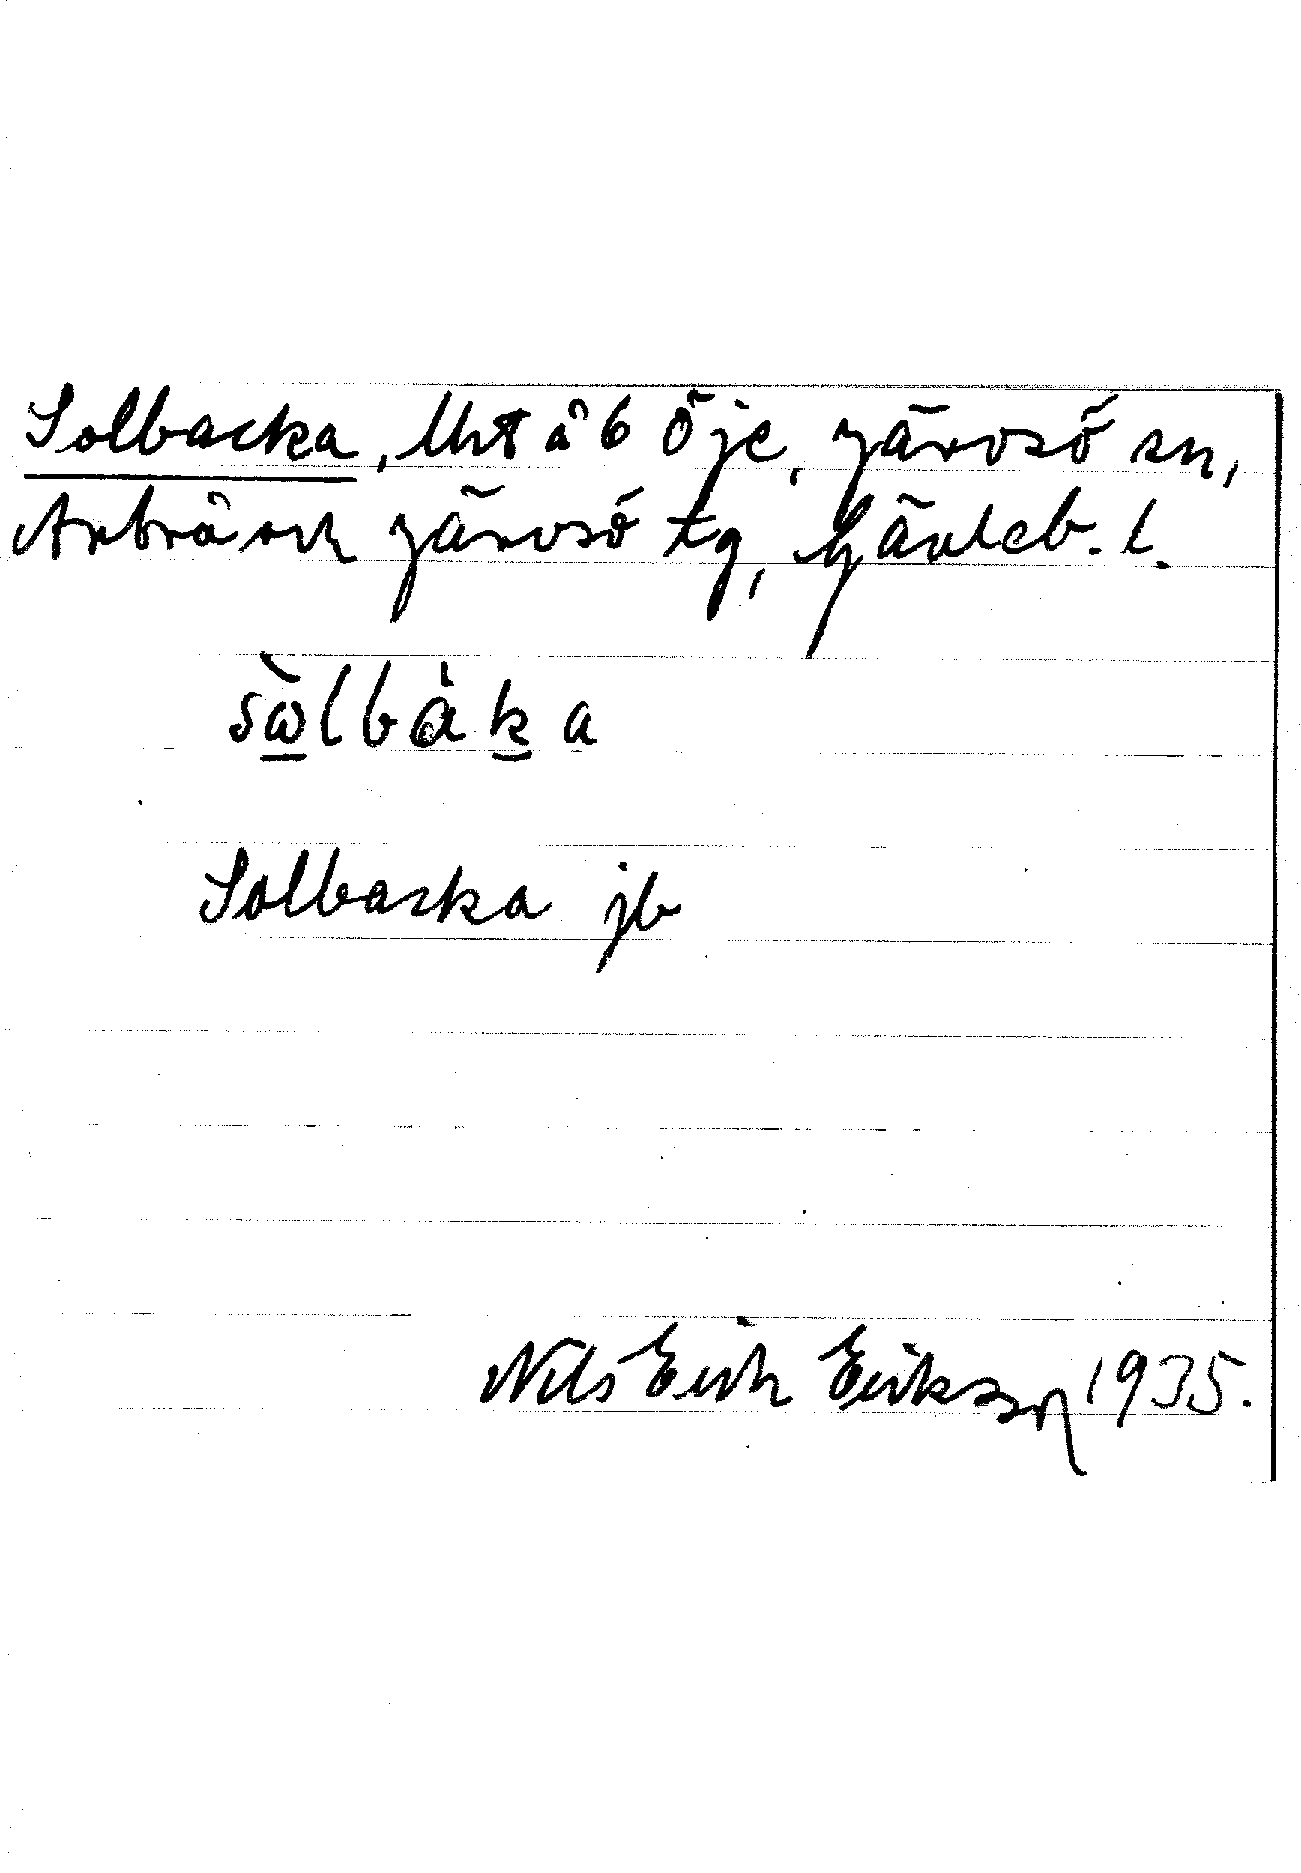 Solbacka, lht å 6 Öje, Järvsö sn,
Arbrå och Järvsö tg, Gävleb. l.
sὼlbàka
Solbacka jb
Nils Erik Eriksson 1935.